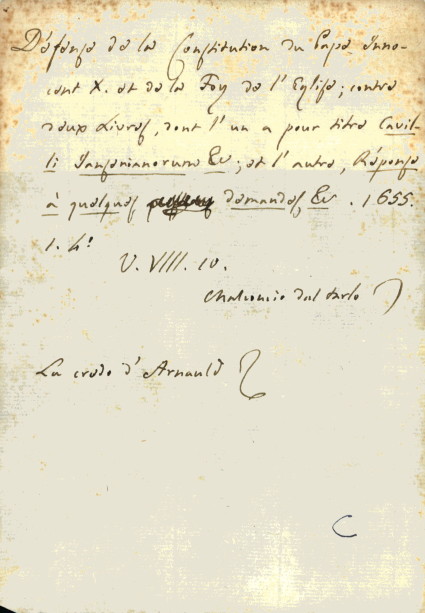 Défense de la Constitution du Pape Inno-
cent X. et de la Foy de l'Eglise; contre
deux Livres, dont l'un a pour titre Cavil-
li Jansenianorum &c; et l'autre, Réponse
à quelques demandes, &c. 1655.
1. 4°
V. VIII. 10.
dal
La crede d'Arnauld
C